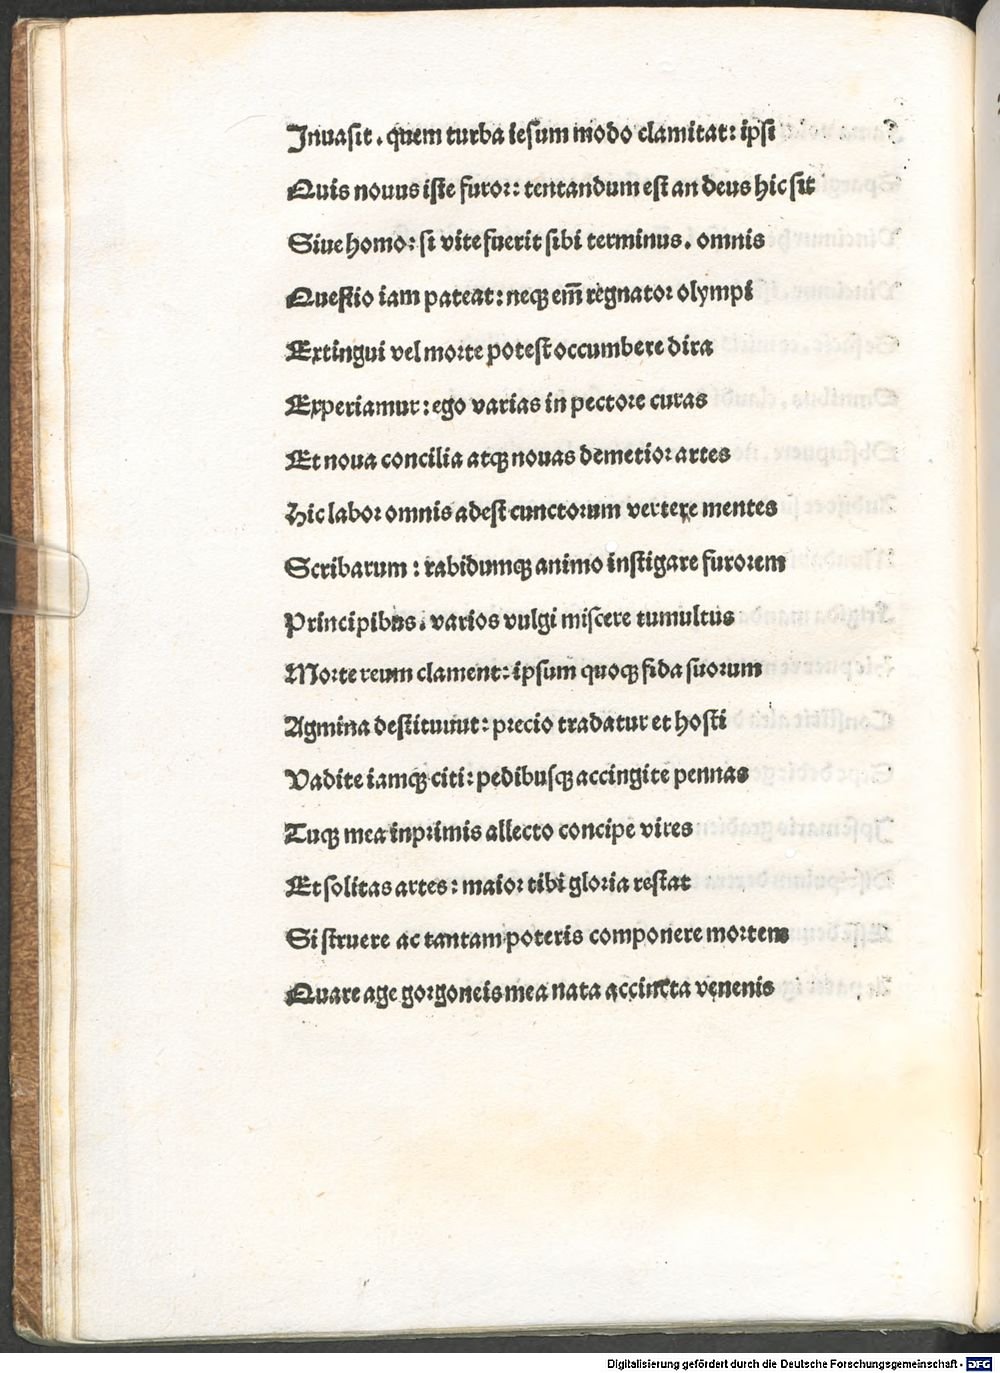 Inuasit. quem turba iesum modo clamitat: ipsi
Quis nouus iste furor: tentandum est an deus hic sit
Siue homo: si vite fuerit sibi terminus. omnis
Questio iam pateat: neqꝫ em̄ regnator olympi
Extingui vel morte potest occumbere dira
Experiamur: ego varias in pectore curas
Et noua concilia atqꝫ nouas demetior artes
Hic labor omnis adest cunctorum vertere mentes
Scribarum: rabidumqꝫ animo instigare furorem
Principibus. varios vulgi miscere tumultus
Morte reum clament: ipsum quoqꝫ fida suorum
Agmina destituunt: precio tradatur et hosti
Vadite iamqꝫ citi: pedibusqꝫ accingite pennas
Tuqꝫ mea inprimis allecto concipe vires
Et solitas artes: maior tibi gloria restat
Si struere ac tantam poteris componere mortem
Quare age gorgoneis mea nata accincta venenis
Digitalisierung gefördert durch die Deutsche Forschungsgemeinschaft - DFG